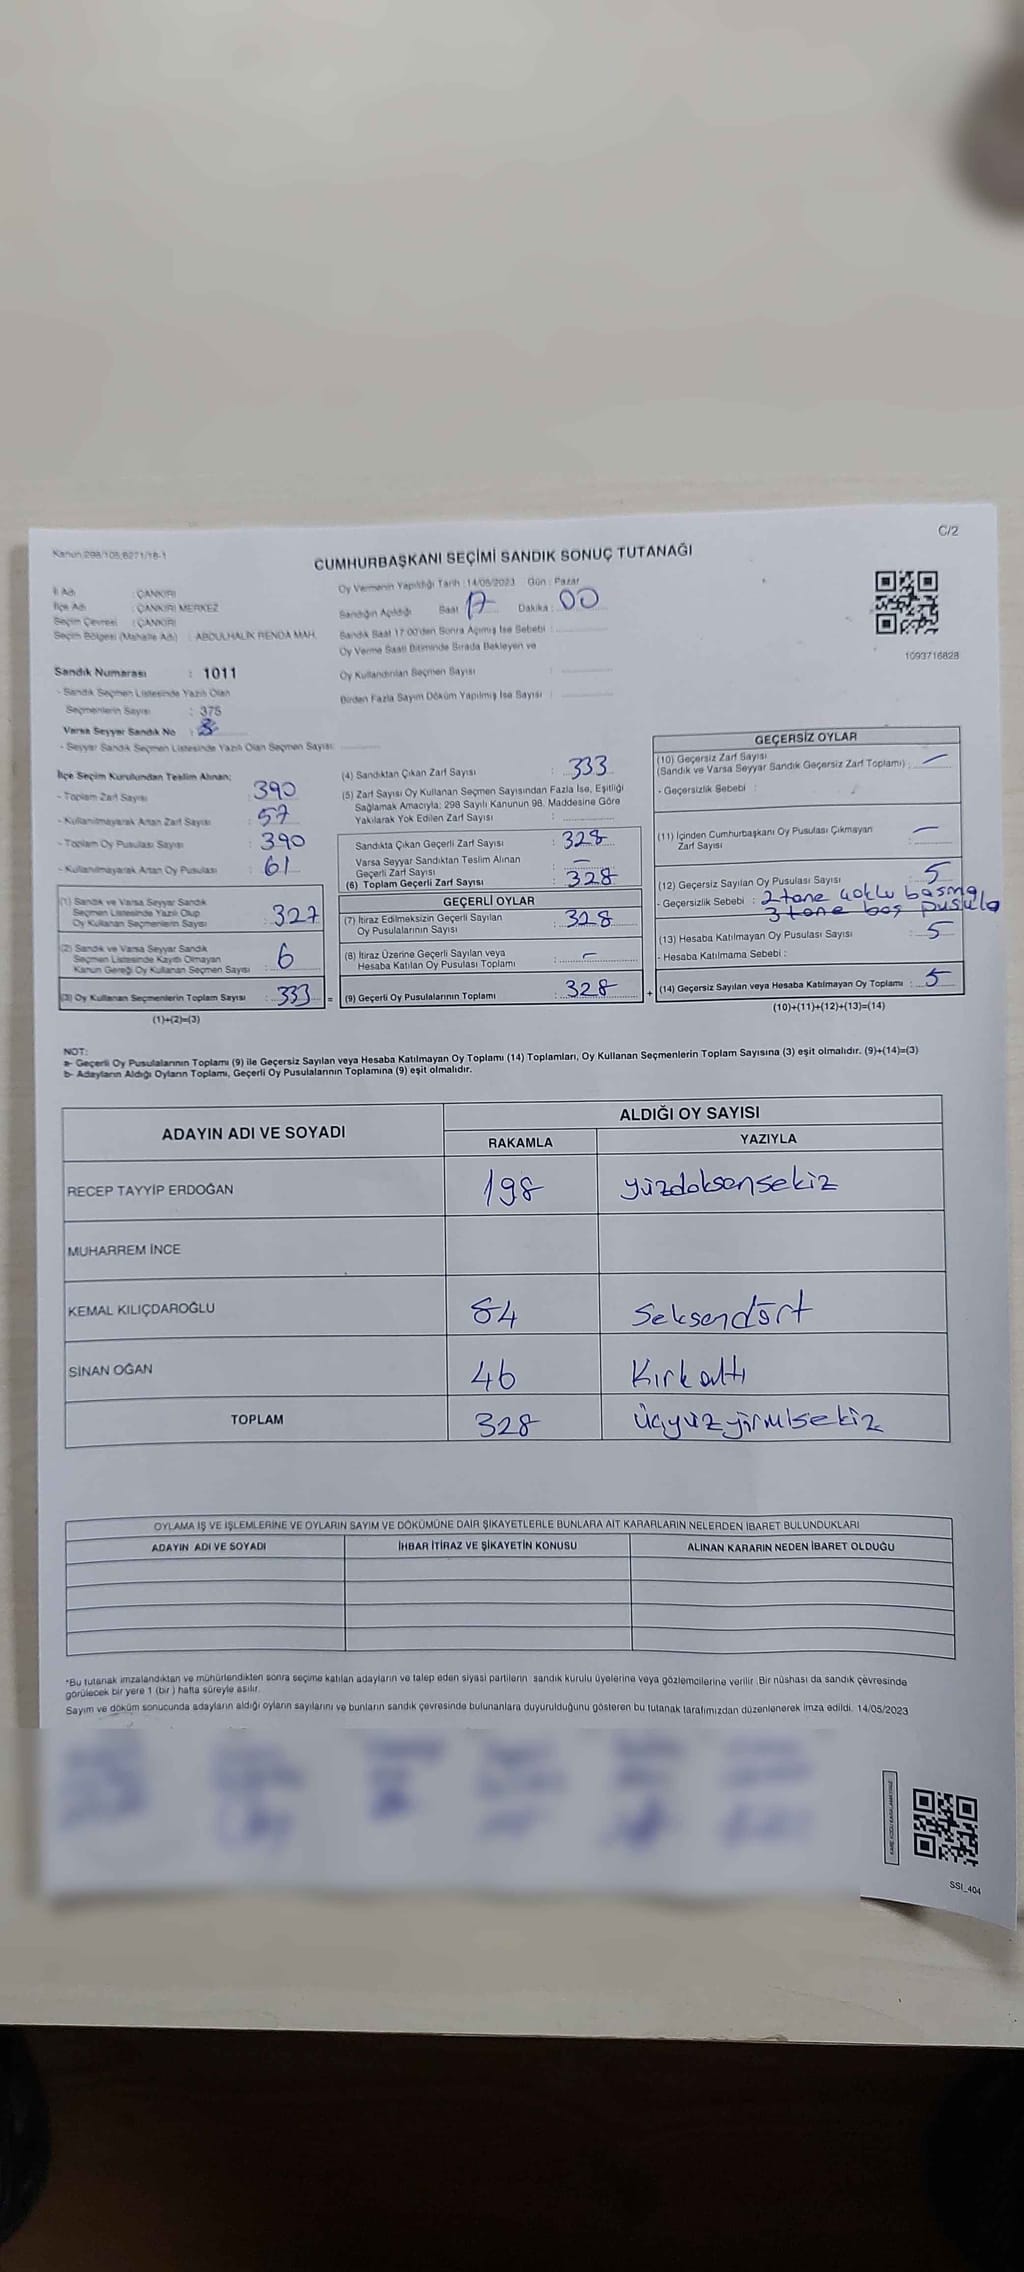 C/2
Kanun:298/105,6271/18-1
CUMHURBAŞKANI SEÇİMİ SANDIK SONUÇ TUTANAĞI
İl Adı : ÇANKIRI
İlçe Adı : ÇANKIRI MERKEZ
Seçim Çevresi : ÇANKIRI
Seçim Bölgesi (Mahalle Adı) : ABDULHALİK RENDA MAH.
Oy Vermenin Yapıldığı Tarih :14/05/2023 Gün : Pazar
Sandığın Açıldığı Saat : 17 Dakika : 00
Sandık Saat 17:00'den Sonra Açmış İse Sebebi :
Oy Verme Saati Bitiminde Sırada Bekleyen ve
Oy Kullandırılan Seçmen Sayısı :
Birden Fazla Sayım Döküm Yapılmış İse Sayısı :
1093716828
Sandık Numarası : 1011
- Sandık Seçmen Listesinde Yazılı Olan
Seçmenlerin Sayısı : 375
Varsa Seyyar Sandık No :
- Seyyar Sandık Seçmen Listesinde Yazılı Olan Seçmen Sayısı:
İlçe Seçim Kurulundan Teslim Alınan;
- Toplam Zarf Sayısı : 390
- Kullanılmayarak Artan Zarf Sayısı : 57
- Toplam Oy Pusulası Sayısı : 390
- Kullanılmayarak Artan Oy Pusulası : 61
(1) Sandık ve Varsa Seyyar Sandık
Seçmen Listesinde Yazılı Olup
Oy Kullanan Seçmenlerin Sayısı : 327
(2) Sandık ve Varsa Seyyar Sandık
Seçmen Listesinde Kayıtlı Olmayan
Kanun Gereği Oy Kullanan Seçmen Sayısı : 6
(3) Oy Kullanan Seçmenlerin Toplam Sayısı : 333 =
(1)+(2)=(3)
(4) Sandıktan Çıkan Zarf Sayısı : 333
(5) Zarf Sayısı Oy Kullanan Seçmen Sayısından Fazla İse, Eşitliği
Sağlamak Amacıyla; 298 Sayılı Kanunun 98. Maddesine Göre
Yakılarak Yok Edilen Zarf Sayısı :
Sandıkta Çıkan Geçerli Zarf Sayısı : 328
Varsa Seyyar Sandıktan Teslim Alınan
Geçerli Zarf Sayısı : —
(6) Toplam Geçerli Zarf Sayısı : 328
GEÇERLİ OYLAR
(7) İtiraz Edilmeksizin Geçerli Sayılan
Oy Pusulalarının Sayısı : 328
(8) İtiraz Üzerine Geçerli Sayılan veya
Hesaba Katılan Oy Pusulası Toplamı : —
(9) Geçerli Oy Pusulalarının Toplamı : 328 +
GEÇERSİZ OYLAR
(10) Geçersiz Zarf Sayısı
(Sandık ve Varsa Seyyar Sandık Geçersiz Zarf Toplamı) : —
- Geçersizlik Sebebi :
(11) İçinden Cumhurbaşkanı Oy Pusulası Çıkmayan
Zarf Sayısı : —
(12) Geçersiz Sayılan Oy Pusulası Sayısı : 5
- Geçersizlik Sebebi : 2 tane çoklu basma
3 tane boş pusula
(13) Hesaba Katılmayan Oy Pusulası Sayısı : 5
- Hesaba Katılmama Sebebi :
(14) Geçersiz Sayılan veya Hesaba Katılmayan Oy Toplamı : 5
(10)+(11)+(12)+(13)=(14)
NOT:
a- Geçerli Oy Pusulalarının Toplamı (9) ile Geçersiz Sayılan veya Hesaba Katılmayan Oy Toplamı (14) Toplamları, Oy Kullanan Seçmenlerin Toplam Sayısına (3) eşit olmalıdır. (9)+(14)=(3)
b- Adayların Aldığı Oyların Toplamı, Geçerli Oy Pusulalarının Toplamına (9) eşit olmalıdır.
ADAYIN ADI VE SOYADI ALDIĞI OY SAYISI
RAKAMLA YAZIYLA
RECEP TAYYİP ERDOĞAN 198 yüzdoksensekiz
MUHARREM İNCE
KEMAL KILIÇDAROĞLU 84 Seksendört
SİNAN OĞAN 46 Kırkaltı
TOPLAM 328 Üçyüzyirmisekiz
OYLAMA İŞ VE İŞLEMLERİNE VE OYLARIN SAYIM VE DÖKÜMÜNE DAİR ŞİKAYETLERLE BUNLARA AİT KARARLARIN NELERDEN İBARET BULUNDUKLARI
ADAYIN ADI VE SOYADI İHBAR İTİRAZ VE ŞİKAYETİN KONUSU ALINAN KARARIN NEDEN İBARET OLDUĞU
*Bu tutanak imzalandıktan ve mühürlendikten sonra seçime katılan adayların ve talep eden siyasi partilerin sandık kurulu üyelerine veya gözlemcilerine verilir. Bir nüshası da sandık çevresinde
görülecek bir yere 1 (bir ) hafta süreyle asılır.
Sayım ve döküm sonucunda adayların aldığı oyların sayılarını ve bunların sandık çevresinde bulunanlara duyurulduğunu gösteren bu tutanak tarafımızdan düzenlenerek imza edildi. 14/05/2023
KARE KODU KARALAMAYINIZ
SSI_404